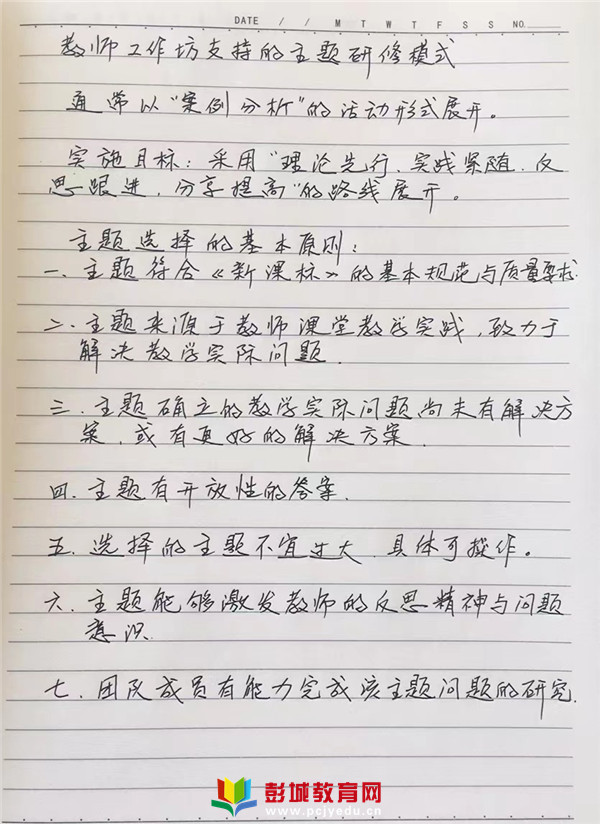 DATE / / M T W T F S S NO.
教师工作坊支持的主题研修模式
通常以“案例分析”的活动形式展开。
实施目标:采用“理论先行、实践紧随、反
思跟进、分享提高”的路线展开。
主题选择的基本原则:
一、主题符合《新课标》的基本规范与质量要求
二、主题来源于教师课堂教学实践,致力于
解决教学实际问题.
三、主题确立的教学实际问题尚未有解决方
案,或有更好的解决方案.
四.主题有开放性的答案.
五.选择的主题不宜过大、具体可操作。
六.主题能够激发教师的反思精神与问题
意识.
七.团队成员有能力完成该主题问题的研究.
彭城教育网
www.pcjyedu.cn